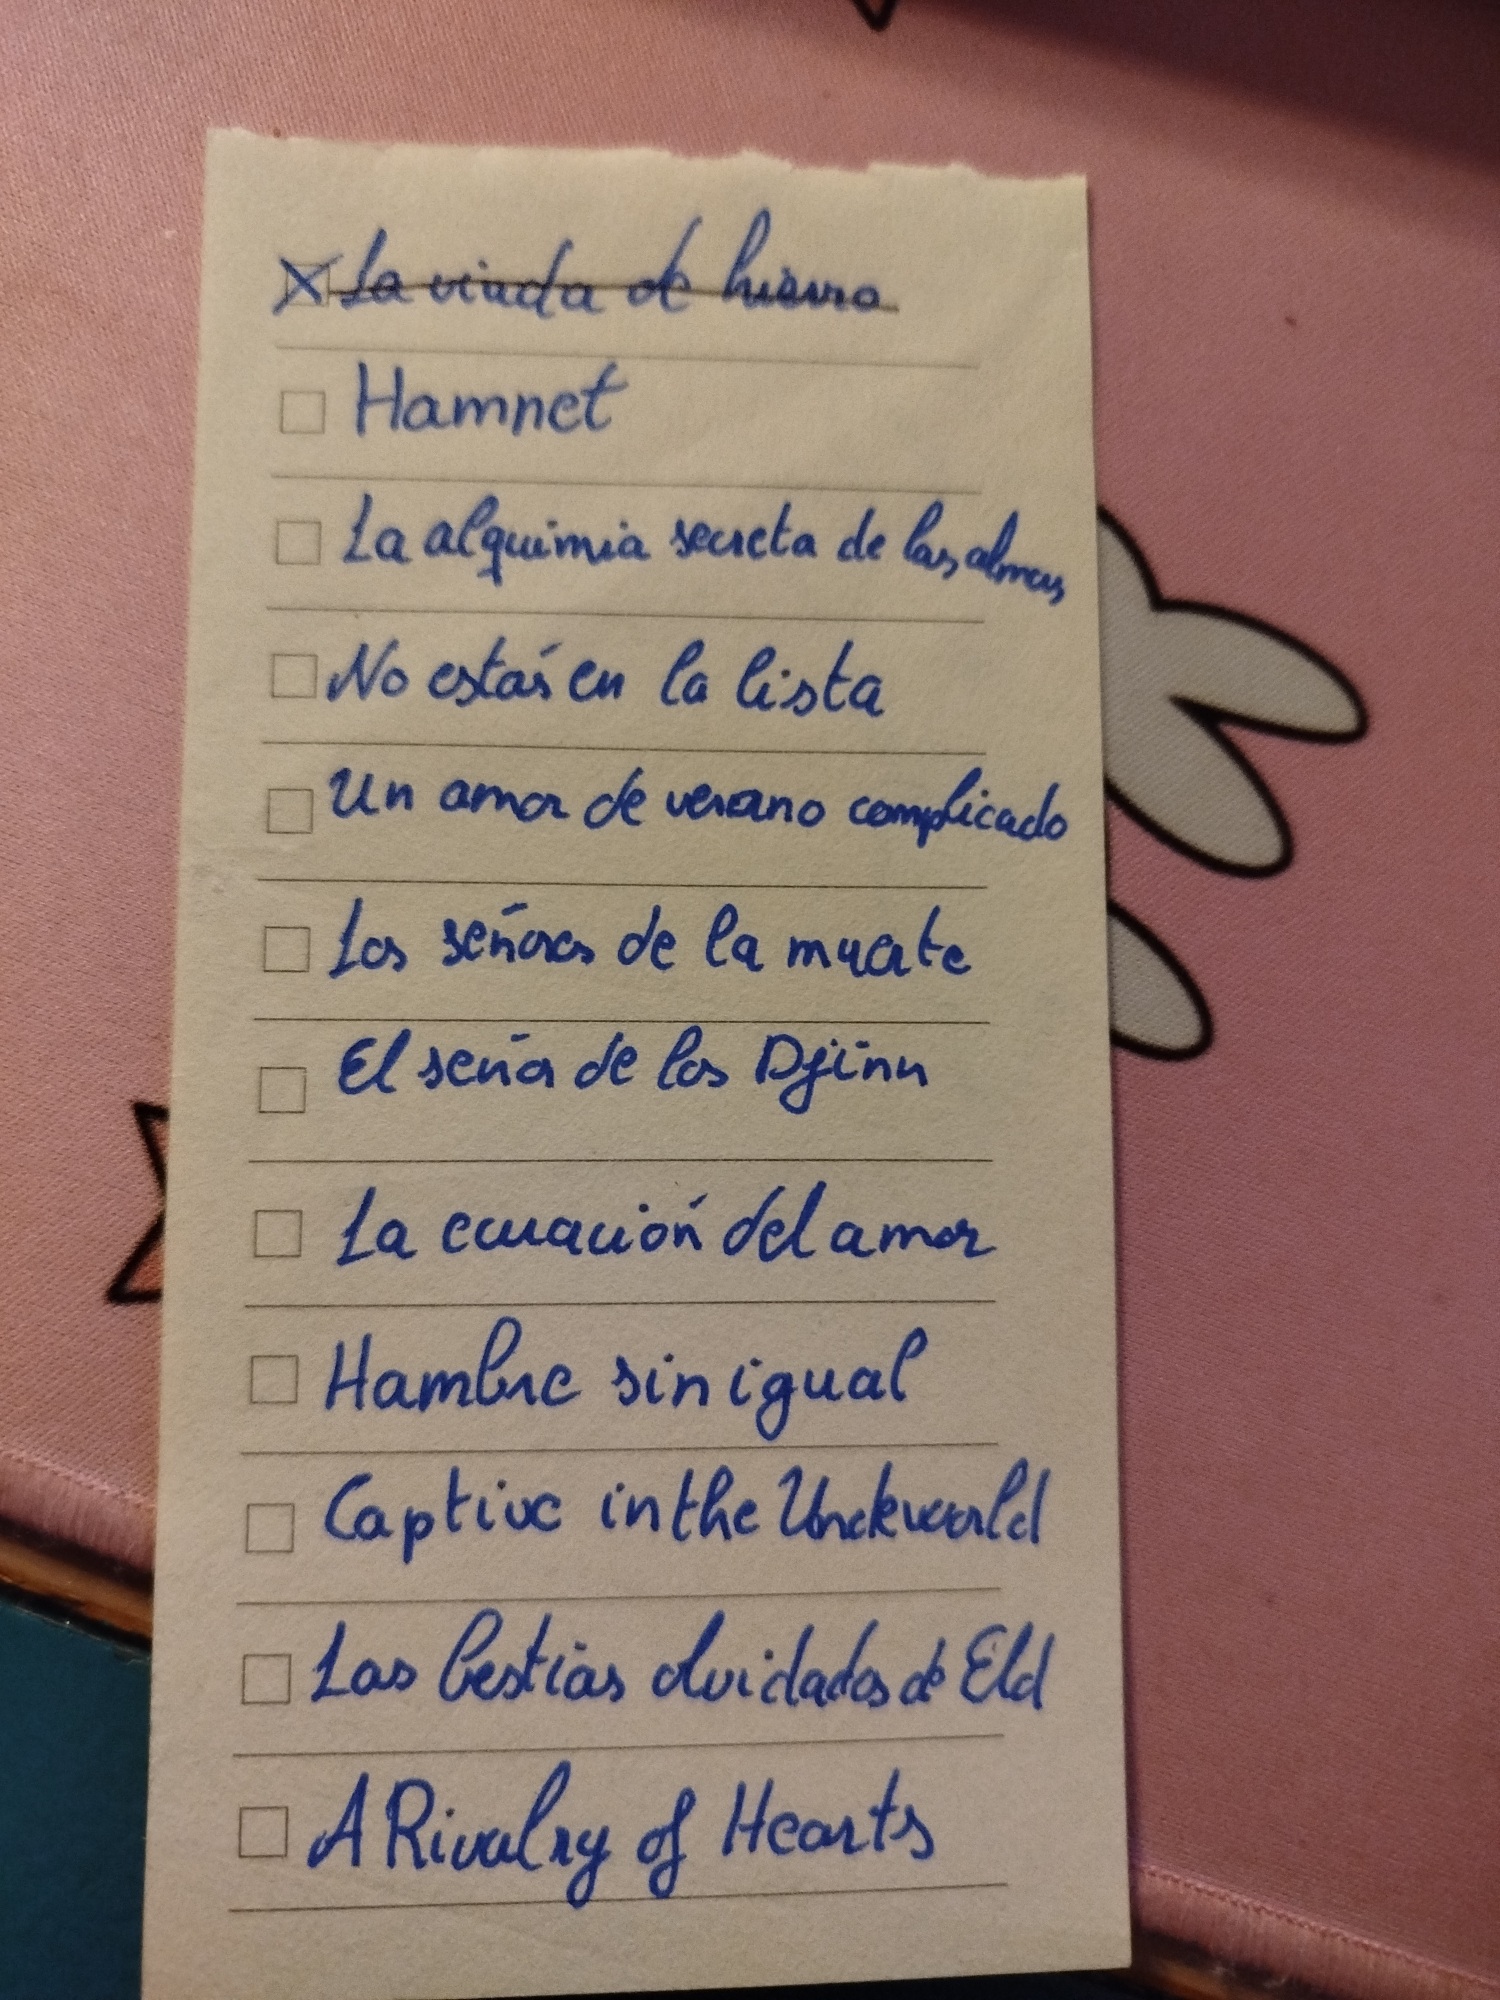 La viuda de hierro
Hamnet
La alquimia secreta de las almas
No estás en la lista
Un amor de verano complicado
Los señores de la muerte
El señor de los Djinn
La ecuación del amor
Hambre sin igual
Captive in the Underworld
Las bestias olvidadas de Eld
A Rivalry of Hearts